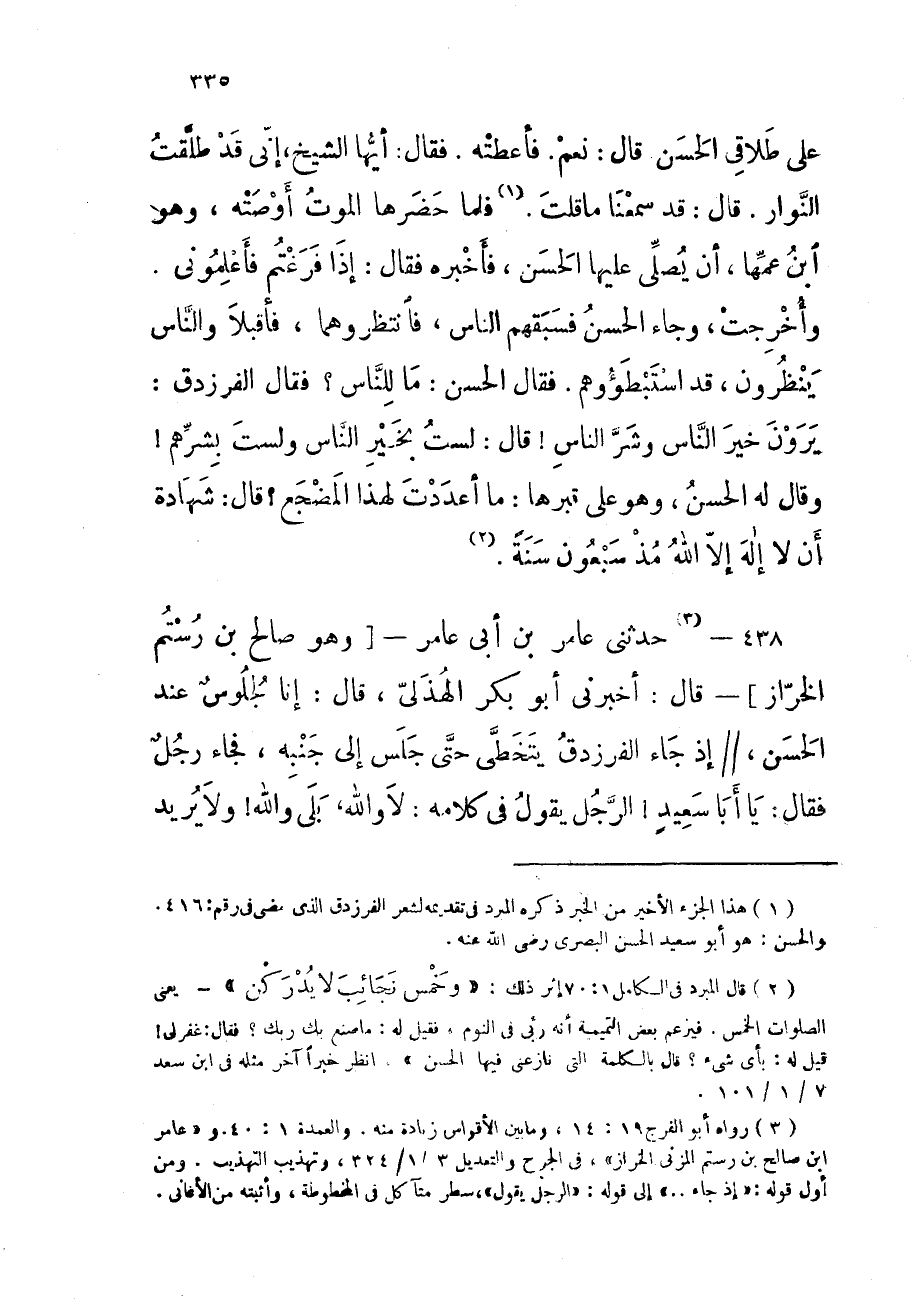 ٣٣٥
على طَلاقِي الحَسَن قال : نعمْ. فأعطتْه . فقال: أيُّها الشيخ، إنّى قَدْ طلَّقتُ
النَّوار . قال : قد سمعْنَا ماقلتَ .(١) فلما حَضَرها الموتُ أَوْصَتْه ، وهو
ٱبنُ عمِّها ، أن يُصلِّى عليها الحَسَن ، فأَخْبره فقال : إذَا فَرَغْتُم فأَعْلِمُونى .
وأُخْرِجتْ ، وجاء الحسنُ فسَبَقهم الناس ، فٱنتظروهما ، فأقبلاَ والنَّاس
يَنْظُرون ، قد اسْتَبْطَؤُوهم . فقال الحسن : مَا لِلنَّاس ؟ فقال الفرزدق :
يَرَوْنَ خيرَ النَّاس وشَرَّ الناسِ ! قال : لستُ بخَيْرِ النَّاس ولستَ بِشرِّهم !
وقال له الحسنُ ، وهو على قبرها : ما أعدَدْتَ لهذا المَضْجَع ؟ قال: شَهَادة
أَن لا إلٰهَ إلاّ اللهُ مُذْ سَبْعُون سَنَةً .(٢)
٤٣٨ — (٣) حدثنى عامر بن أبى عامر — [ وهو صالح بن رُسْتُم
الخرّاز ] — قال : أخبرنى أبو بكر الهُذَلىّ ، قال : إنا لجُلُوسٌ عند
الحَسَن ، // إذ جَاء الفرزدقُ يتَخَطَّى حتَّى جَلَس إلى جَنْبِه ، فجاء رجُلٌ
فقال : يَا أَبَا سَعِيدٍ ! الرَّجُل يقولُ فى كلامه : لاَ والله، بَلَى والله! ولاَ يُريد
( ١ ) هذا الجزء الأخير من الخبر ذكره المبرد فى تقديمه لشعر الفرزدق الذى مضى فى رقم: ٤١٦ .
والحسن : هو أبو سعيد الحسن البصرى رضى الله عنه .
( ٢ ) قال المبرد فى الكامل ١ : ٧٠ إثر ذلك : « وخَمْس نَجَائِبَ لا يُدْرَكْن » — يعنى
الصلوات الخمس . فيزعم بعض التميمية أنه رئى فى النوم ، فقيل له : ماصنع بك ربك ؟ فقال: غفر لى !
قيل له : بأى شىء ؟ قال بالكلمة التى نازعنى فيها الحسن » . انظر خبراً آخر مثله فى ابن سعد
٧ / ١ / ١٠١ .
( ٣ ) رواه أبو الفرج ١٩ : ١٤ ، ومابين الأقواس زيادة منه . والعمدة ١ : ٤٠ . و « عامر
ابن صالح بن رستم المزنى الخراز» ، فى الجرح والتعديل ٣ / ١ / ٣٢٤ ، وتهذيب التهذيب . ومن
أول قوله : « إذ جاء .. » إلى قوله : « الرجل يقول» ، سطر متآكل فى المخطوطة ، وأثبته من الأغانى .